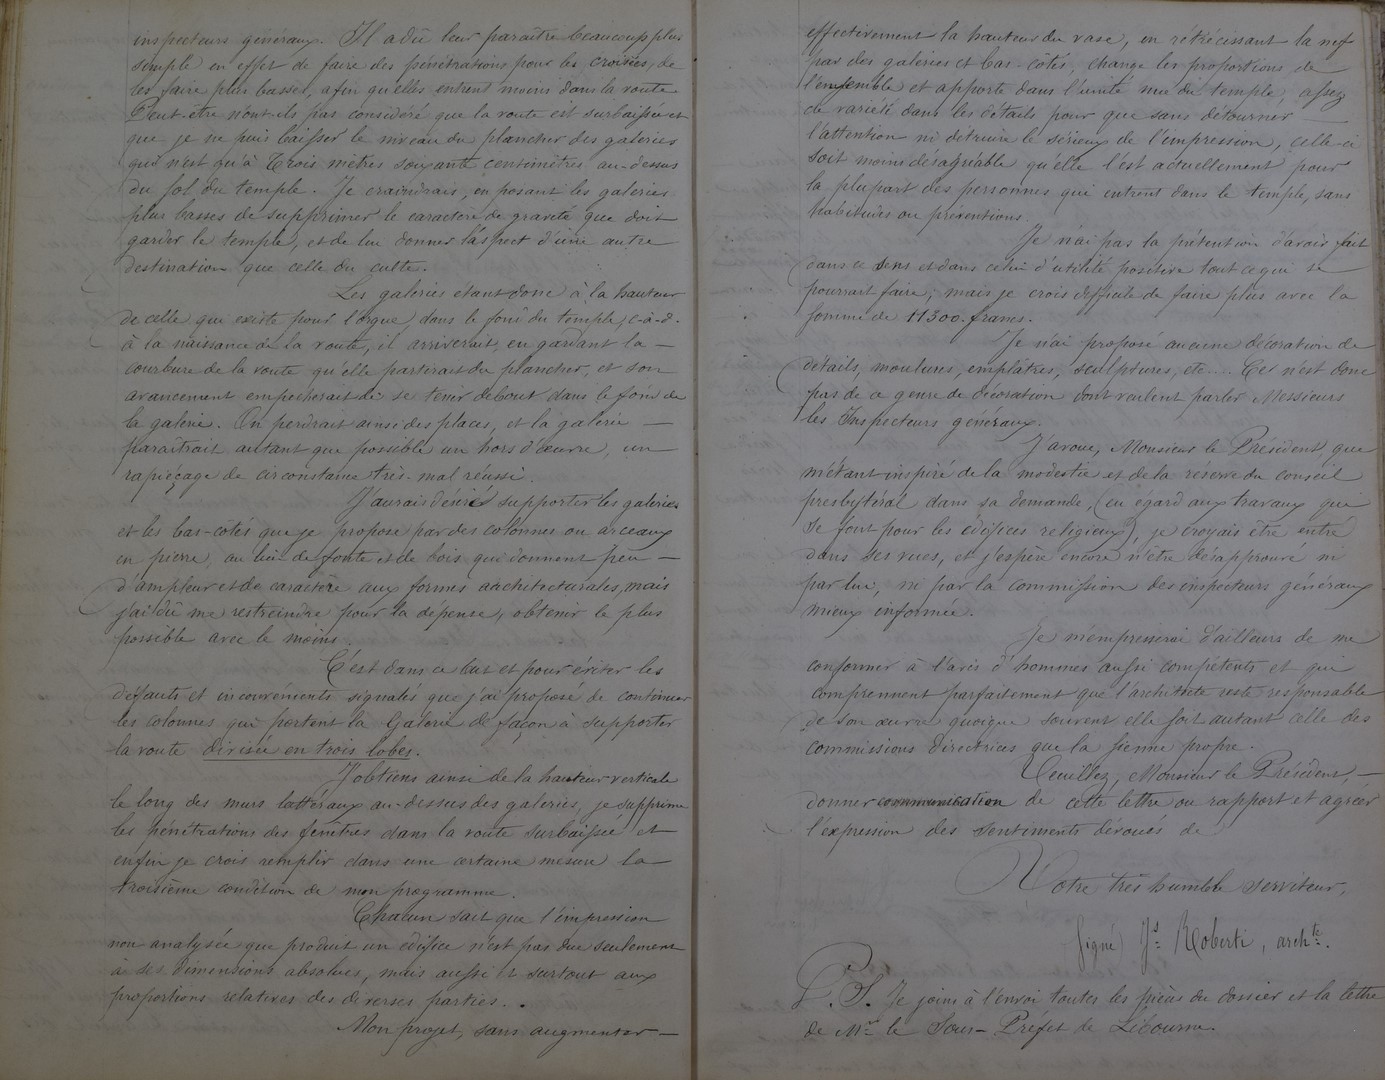 inspecteurs généraux. Il a dû leur paraître beaucoup plus
simple en effet de faire des pénétrations pour les croisées, de
les faire plus basses, afin qu'elles entrent moins dans la voute
Peut-être n'ont-ils pas considéré que la voute est surbaissée et
que je ne puis baisser le niveau du plancher des galeries
qui n'est qu'à Trois mètres soixante centimètres au-dessus
du sol du temple. Je craindrais, en posant les galeries
plus basses de supprimer le caractère de gravité que doit
garder le temple, et de lui donner l'aspect d'une autre
destination que celle du culte.
Les galeries étant donc à la hauteur
de celle qui existe pour l'orgue, dans le fond du temple, c-à-d.
à la naissance de la voute, il arriverait, en gardant la —
courbure de la voute qu'elle partirait du plancher, et son
avancement empêcherait de se tenir debout dans le fond de
la galerie. On perdrait ainsi des places, et la galerie —
paraîtrait autant que possible un hors d'œuvre, un —
rapiéçage de circonstance très-mal réussi.
J'aurais désiré supporter les galeries
et les bas-côtés que je propose par des colonnes ou arceaux
en pierre, au lieu de fonte et de bois, qui donnent peu —
d'ampleur et de caractère aux formes architecturales, mais
j'ai dû me restreindre pour la dépense, obtenir le plus
possible avec le moins.
C'est dans ce but et pour éviter les
défauts et inconvénients signalés que j'ai proposé de continuer
les colonnes qui portent la Galerie de façon à supporter
la voute divisée en trois lobes.
J'obtiens ainsi de la hauteur verticale
le long des murs lattéraux au-dessus des galeries, je supprime
les pénétrations des fenêtres dans la voute surbaissée et
enfin je crois remplir dans une certaine mesure la —
troisième condition de mon programme.
Chacun sait que l'impression
non analysée que produit un édifice n'est pas due seulement
à ses dimensions absolues, mais aussi et surtout aux
proportions relatives des diverses parties.
Mon projet, sans augmenter —
effectivement la hauteur du vase, en rétrécissant la nef
par des galeries et bas-côtés, change les proportions de
l'ensemble et apporte dans l'unité nue du temple, assez
de variété dans les détails pour que sans détourner —
l'attention ni détruire le sérieux de l'impression, celle-ci
soit moins désagréable qu'elle l'est actuellement pour
la plupart des personnes qui entrent dans le temple, sans
habitudes ou préventions.
Je n'ai pas la prétention d'avoir fait
dans ce sens et dans celui d'utilité positive tout ce qui se
pourrait faire, mais je crois difficile de faire plus avec la
somme de 11300 francs.
Je n'ai proposé aucune décoration de
détails, moulures, emplâtres, sculptures, etc..... Ce n'est donc
pas de ce genre de décoration dont veulent parler Messieurs
les Inspecteurs généraux.
J'avoue, Monsieur le Président, que
m'étant inspiré de la modestie et de la réserve du conseil
presbytéral dans sa demande, (eu égard aux travaux qui
se font pour les édifices religieux), je croyais être entré
dans ses vues, et j'espère encore n'être désapprouvé ni
par lui, ni par la commission des inspecteurs généraux
mieux informée.
Je m'empresserai d'ailleurs de me
conformer à l'avis d'hommes aussi compétents et qui
comprennent parfaitement que l'architecte reste responsable
de son œuvre quoique souvent elle soit autant celle des
commissions directrices que la sienne propre.
Veuillez, Monsieur le Président, —
donner communication de cette lettre ou rapport et agréer
l'expression des sentiments dévoués de
Votre très humble serviteur,
Signé) Js Roberti, archte.
P. S. Je joins à l'envoi toutes les pièces du dossier et la lettre
de Mr le Sous-Préfet de Libourne.